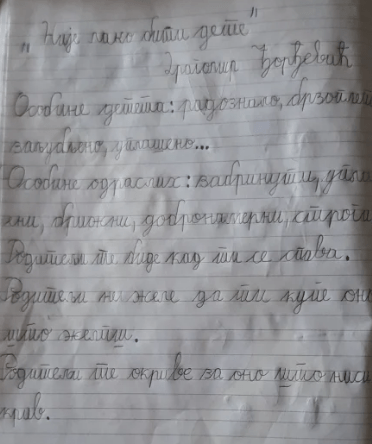 „Није лако бити дете"
Драгослав Ђорђевић
Особине детета: радознало,
заљубљено, уплашено...
Особине одраслих: забринути,
брижни, добронамерни, строги
Родитељи те буде кад ти се спава.
Родитељи не желе да ти купе оно
што желиш.
Родитељи те окриве за оно што ниси
крив.